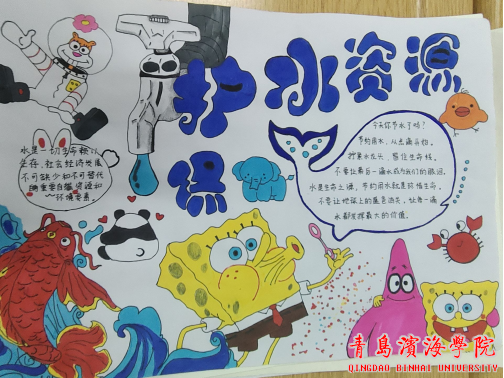 护水资源
保
水是一切生命赖以
生存,社会经济发展
不可缺少和不可替代
的重要自然资源和
环境要素。
今天你节水了吗?
节约用水,从点滴开始。
拧紧水龙头,留住生命线。
不要让最后一滴水成为我们的眼泪。
水是生命之源,节约用水就是珍惜生命。
不要让地球上的蓝色消失,让每一滴
水都发挥最大的价值。
青岛滨海学院
QINGDAO BINHAI UNIVERSITY